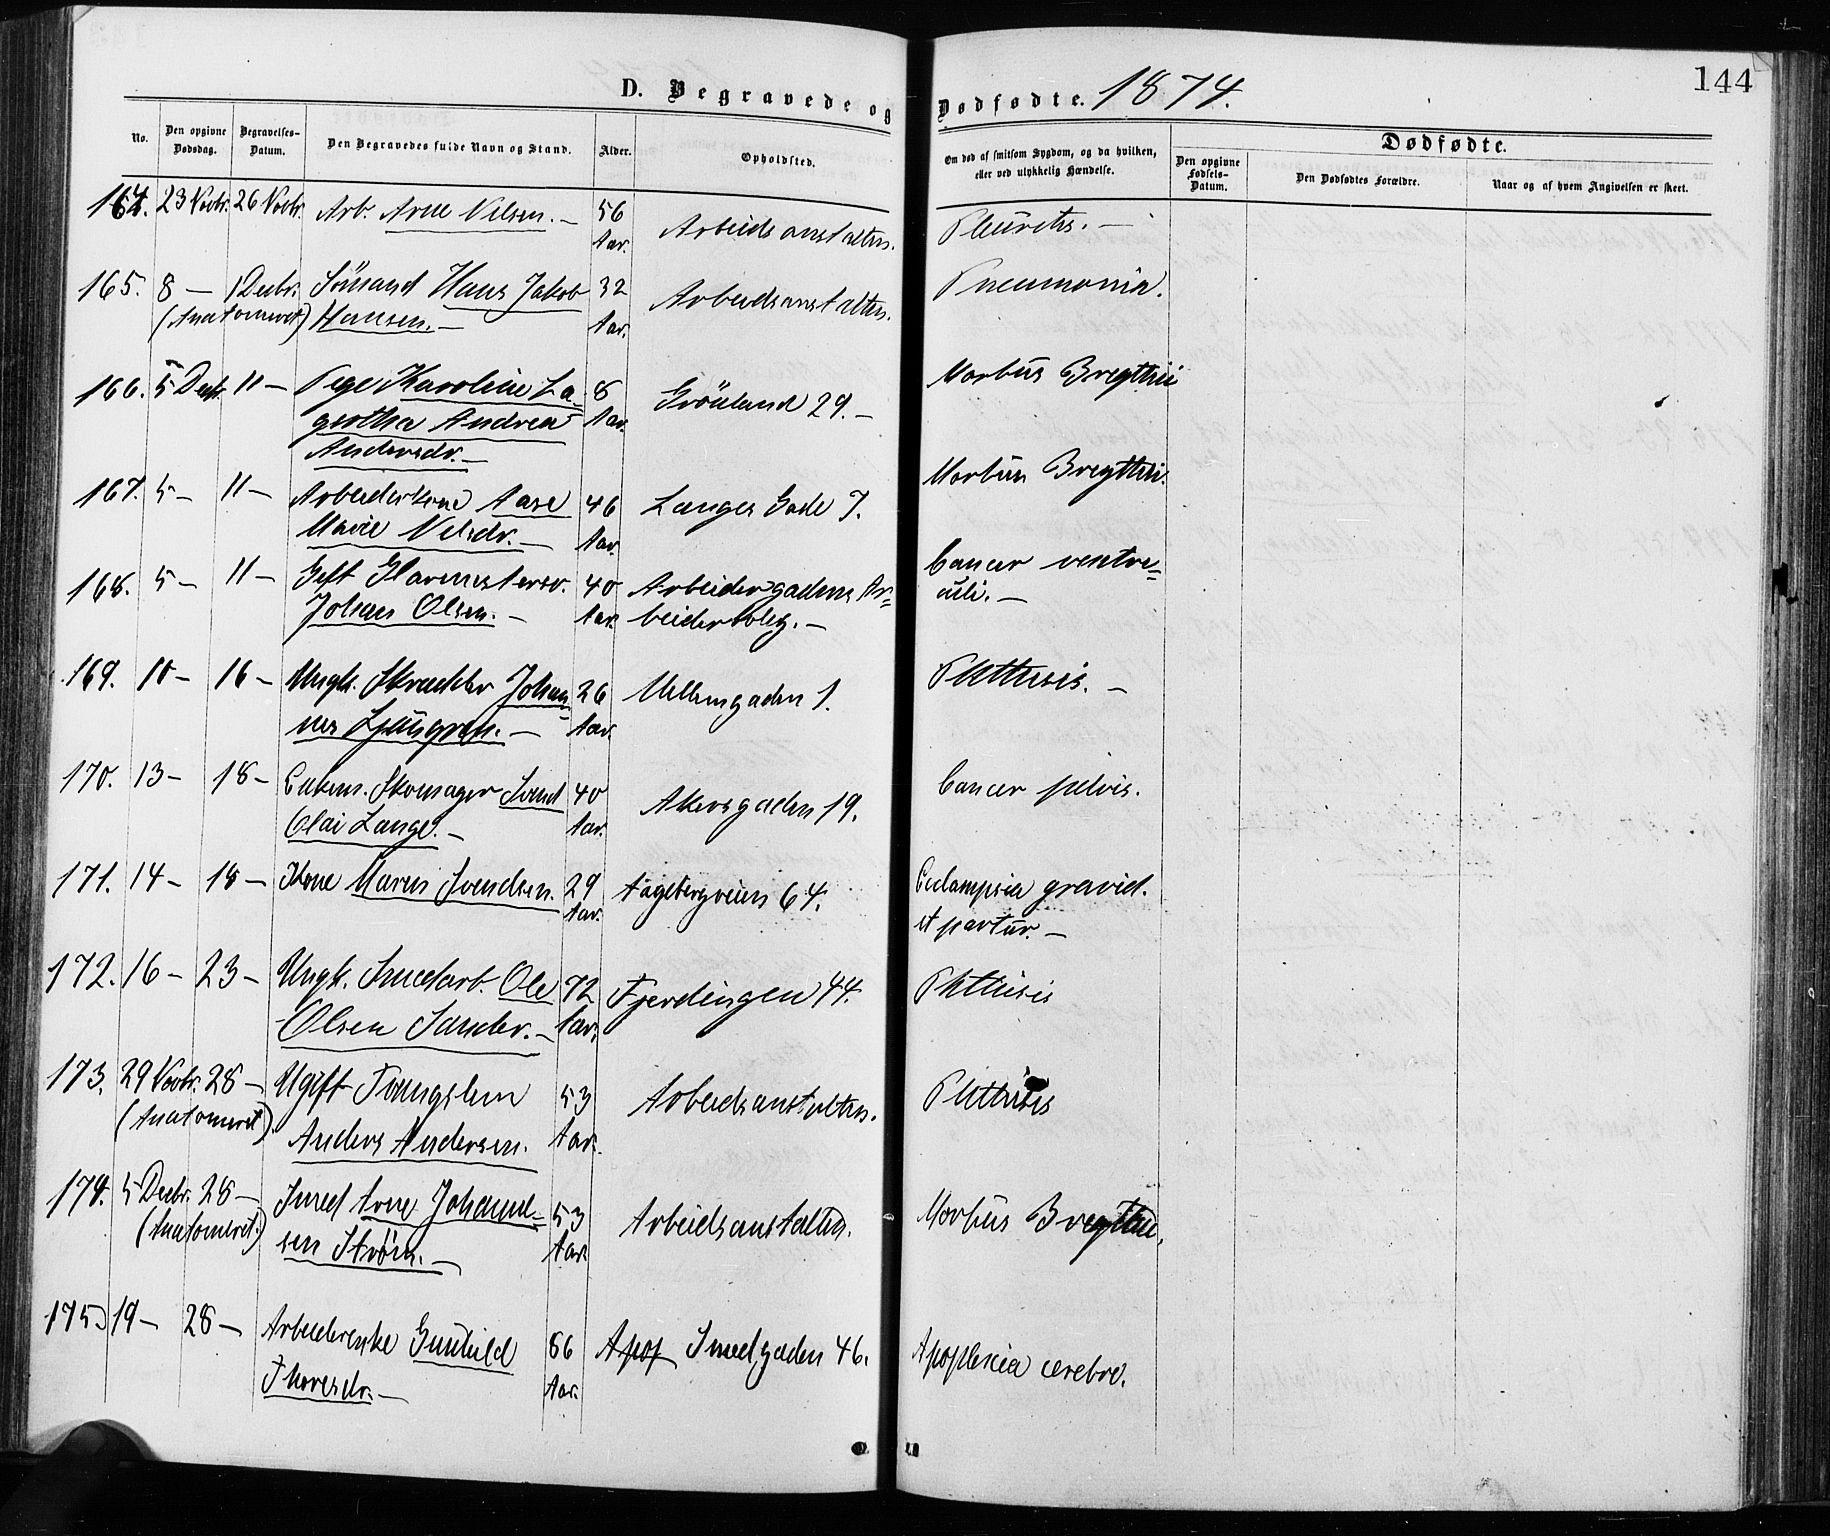 D. Begravede og Dødfødte. 1874.
144
No.
Den opgivne Dødsdag.
Begravelses-Datum.
Den Begravedes fulde Navn og Stand.
Alder.
Opholdsted.
Om død af smitsom Sygdom, og da hvilken, eller ved ulykkelig Hændelse.
Dødfødte.
Den opgivne Fødsels-Datum.
Den Dødfødtes Forældre.
Naar og af hvem Angivelsen er skeet.
164. 23 Novbr. 26 Novbr. Arb. Arne Nilsen. — 56 Aar. Arbeidsanstalten. Pleuritis. —
165. 8 — 1 Decbr. Sömand Hans Jakob 32 Aar. Arbeidsanstalten. Pneumonia.
(Anatomeret) Hansen. —
166. 5 Decbr. 11 — Pige Karoline La= 8 Aar. Grönland 29. — Morbus Bregthii
gertha Andrea
Andersdr. —
167. 5 — 11 — Arbeiderkone Aase 46 Aar. Langes Gade 7. Morbus Bregthii.
Marie Nilsdr. —
168. 5 — 11 — Gift Glarmestersv. 40 Aar. Arbeidergadens Ar= Cancer ventri=
Johan Olsen. — beiderbolig. — culi. —
169. 10 — 16 — Ungk. Skrædder Johan= 26 Aar. Møllergaden 1. Phthisis. —
nes Ljungren. —
170. 13 — 18 — Enkem. Skomager Svend 40 Aar. Akersgaden 19. Cancer pelvis.
Olai Lange. —
171. 14 — 18 — Kone Maren Svendsen. 29 Aar. Aagebergveien 64. Eclampsia gravid.
et partur. —
172. 16 — 23 — Ungk. Smedarb. Ole 72 Aar. Fjerdingen 44. Phthisis
Olsen Sander. —
173. 29 Novbr. 28 — Ugift Tvangslem 53 Aar. Arbeidsanstalten. Phthisis
(Anatomeret) Anders Andersen.
174. 5 Decbr. 28 — Smed Arne Johanne= 53 Aar. Arbeidsanstalten. Morbus Bregthii.
(Anatomeret.) sen Ström. —
175. 19 — 28 — Arbeiderenke Gunhild 86 Aar. Apop Smedgaden 46. Apoplexia cerebri.
Thoresdr. —